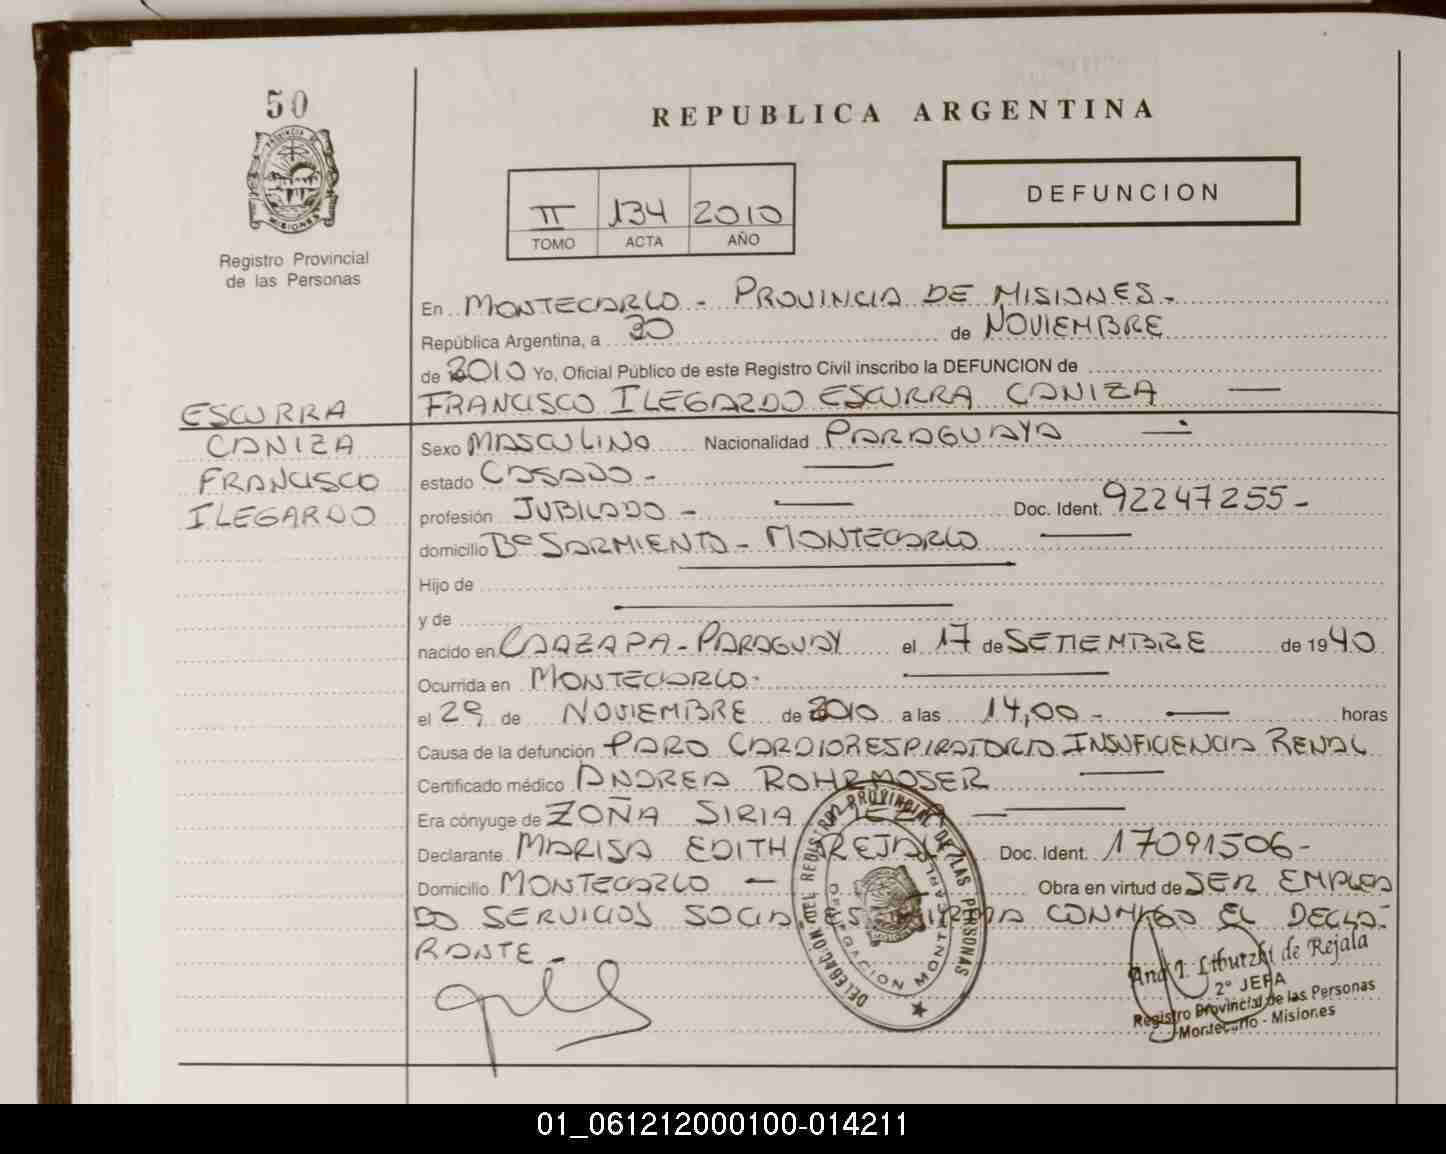 50
PROVINCIA DE
MISIONES
Registro Provincial
de las Personas
REPUBLICA ARGENTINA
II 134 2010
TOMO ACTA AÑO
DEFUNCION
En MONTECARLO - PROVINCIA DE MISIONES.-
República Argentina, a 30 de NOVIEMBRE
de 2010 Yo, Oficial Público de este Registro Civil inscribo la DEFUNCION de
FRANCISCO ILEGARDO ESCURRA CANIZA
ESCURRA
CANIZA
FRANCISCO
ILEGARDO
Sexo MASCULINO Nacionalidad PARAGUAYA
estado CASADO -
profesión JUBILADO - Doc. Ident. 92247255-
domicilio Bº SARMIENTO - MONTECARLO
Hijo de
y de
nacido en CAAZAPA - PARAGUAY el 17 de SETIEMBRE de 1940
Ocurrida en MONTECARLO.
el 29 de NOVIEMBRE de 2010 a las 14,00 - horas
Causa de la defunción PARO CARDIORESPIRATORIO INSUFICIENCIA RENAL
Certificado médico ANDREA ROHRMOSER
Era cónyuge de ZOÑA SIRIA
Declarante MARISA EDITH Doc. Ident. 17091506-
Domicilio MONTECARLO - Obra en virtud de SER EMPLEA
DO SERVICIOS SOCIALES FIRMA CONMIGO EL DECLA-
RANTE -
DELEGACION DEL REGISTRO PROVINCIAL DE LAS PERSONAS
DELEGACION MONTECARLO
Ana I. de Rejala
2º JEFA
Registro Provincial de las Personas
Montecarlo - Misiones
01_061212000100-014211